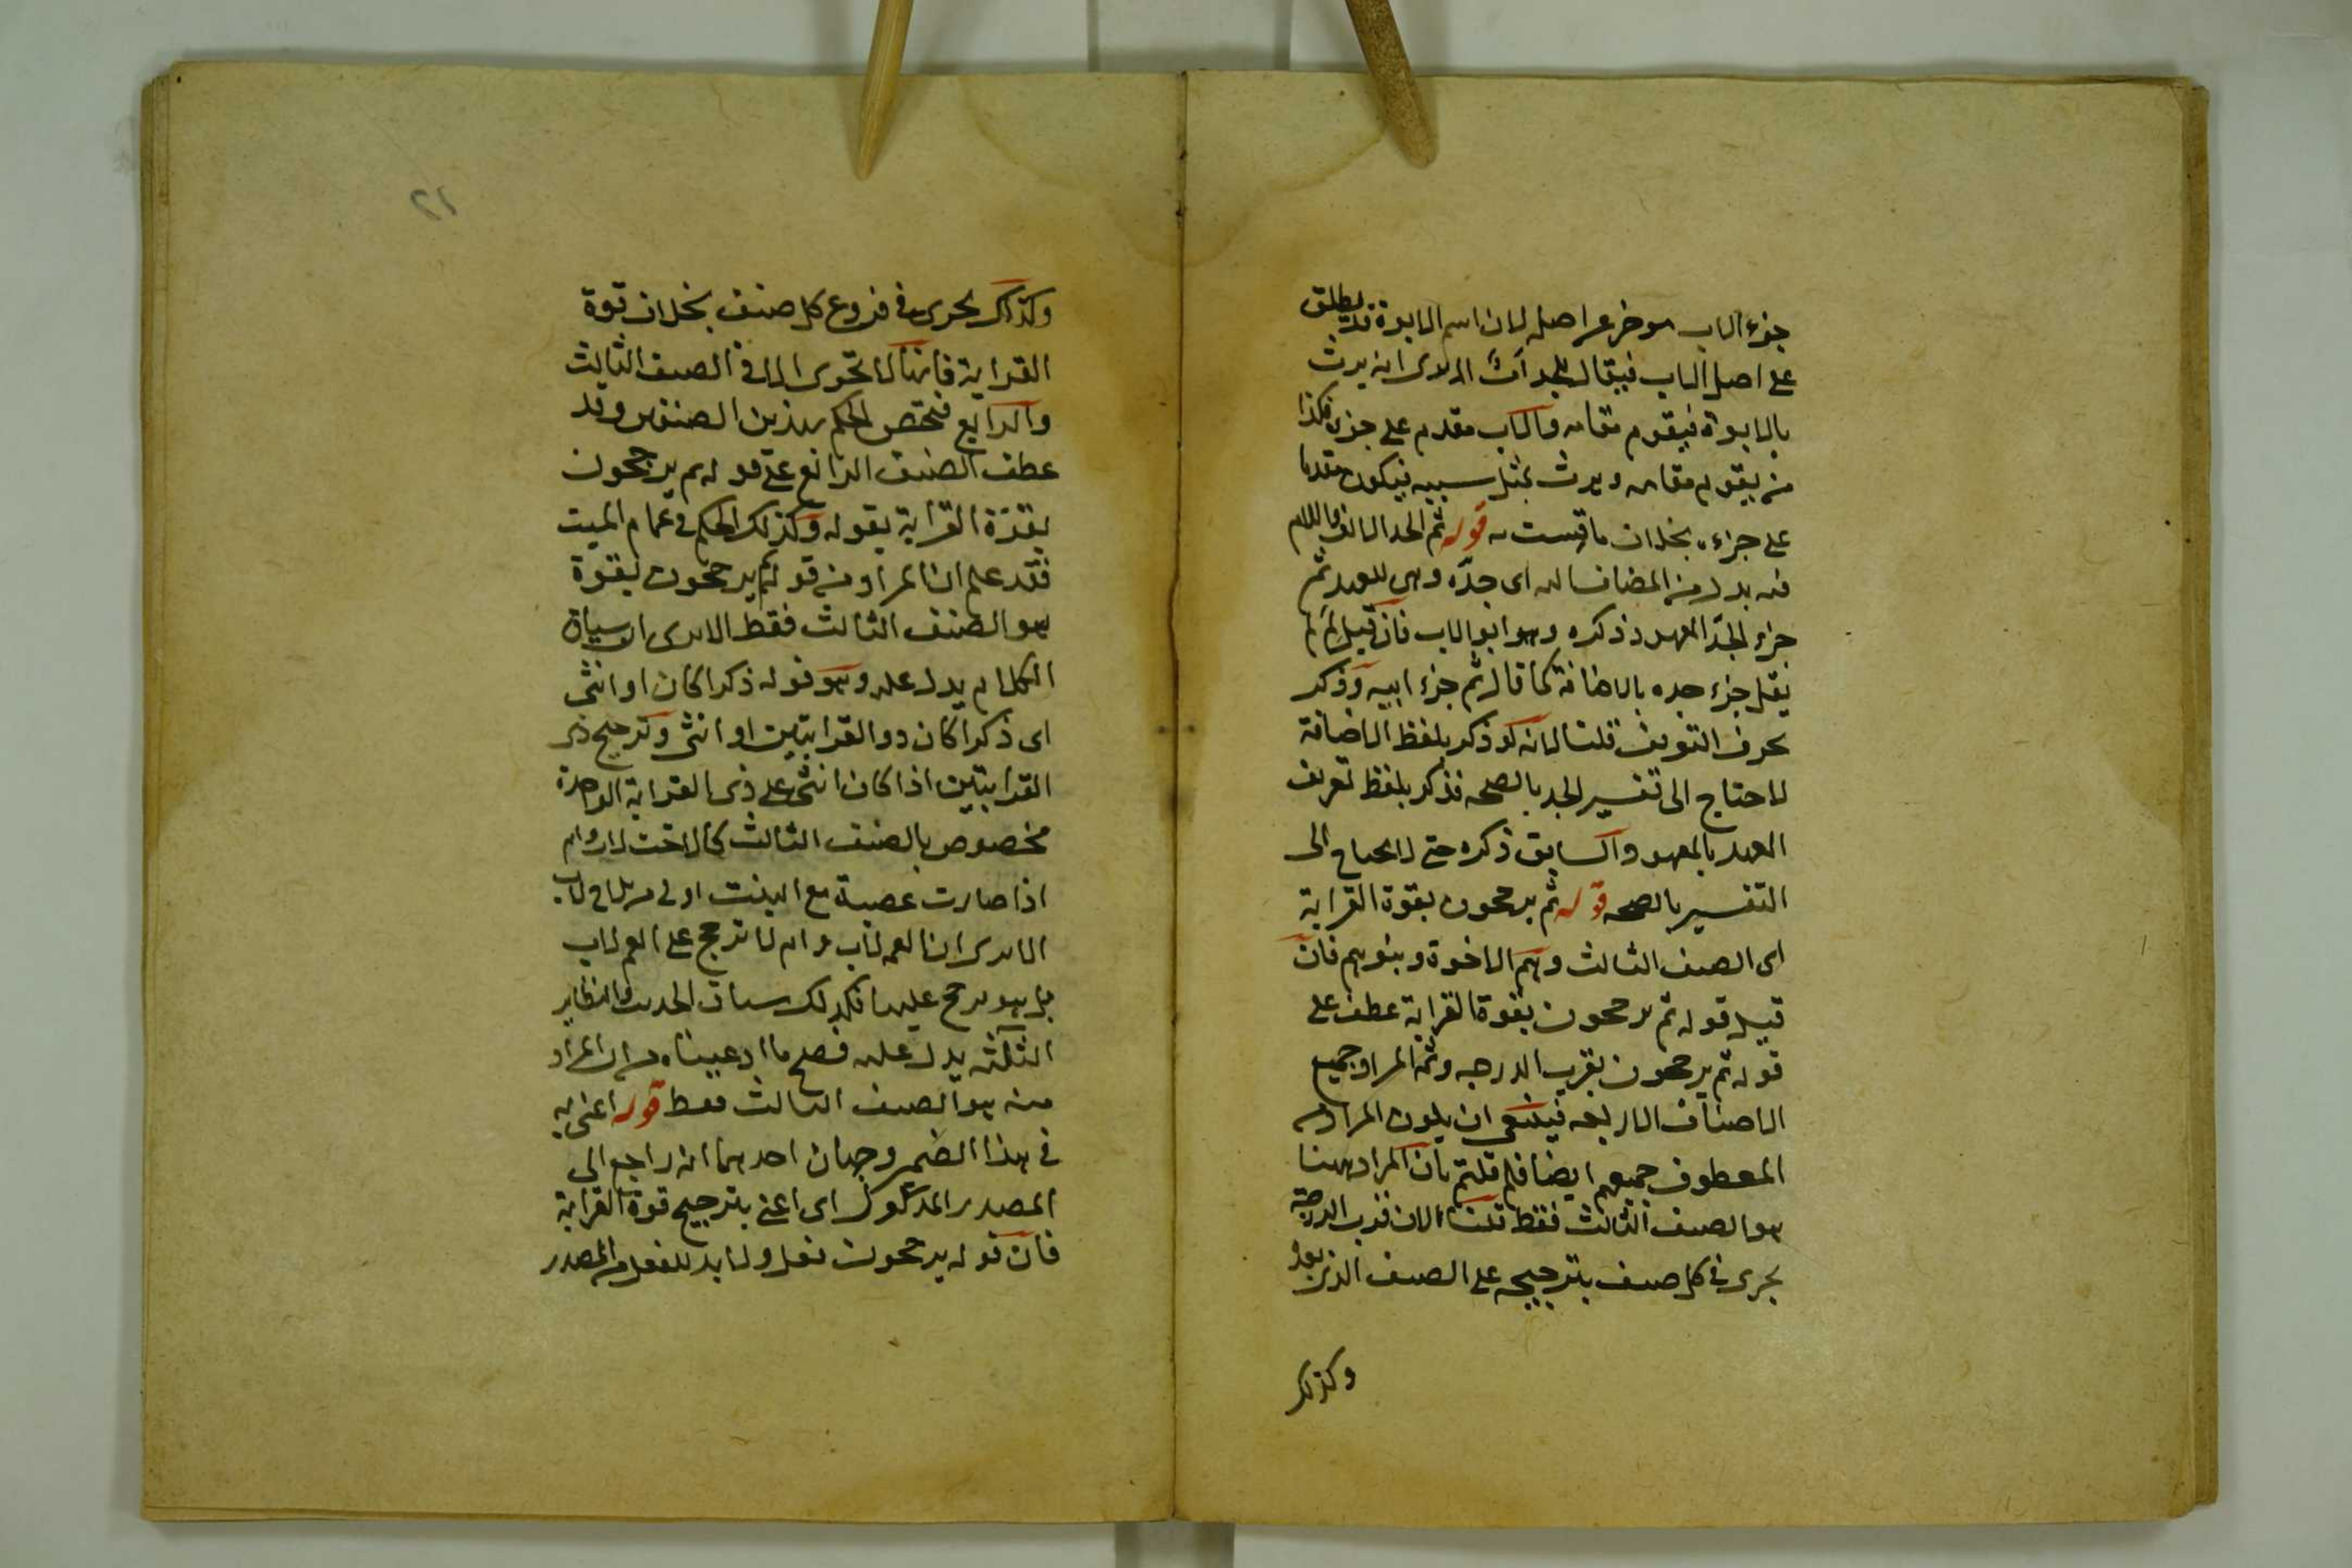 جزء الاب موخر عن اصله لان اسم الابوة قد يطلق
على اصل الاب فيقال للجد اب الا يرى انه يرث
بالابوة فيقوم مقامه والاب مقدم على جزئه فكذا
من يقوم مقامه ويرث بمثل سببه فيكون مقدما
على جزءه بخلاف ما قست به قوله ثم الجد الالف واللام
فيه بدل من المضاف اليه اى جده وهى للعهد ثم
جزء الجد المعهود ذكره وهو ابو الاب فان قيل لم لم
يقل جزء جده بالاضافة كما قال ثم جزء ابيه وذكر
بحرف التعريف قلنا لانه لو ذكر بلفظ الاضافة
لاحتاج الى تفسير الجد بالصحة فذكر بلفظ تعريف
العهد بالمعهود السابق ذكره حتى لا يحتاج الى
التفسير بالصحة قوله ثم يرجحون بقوة القرابة
اى الصنف الثالث وهم الاخوة وبنوهم فان
قيل قوله ثم يرجحون بقوة القرابة عطف على
قوله ثم يرجحون بقرب الدرجة وثمه المراد جميع
الاصناف الاربعة فينبغى ان يكون المراد من
المعطوف جميعهم ايضا فلم قلتم بان المراد ههنا
هو الصنف الثالث فقط قلنا لان قرب الدرجة
يجرى فى كل صنف بترجيحه على الصنف الذى بعده
وكذلك
٢١
وكذلك يجرى فى فروع كل صنف بخلاف قوة
القرابة فانها لا تجرى الا فى الصنف الثالث
والرابع فيختص الحكم بهذين الصنفين وقد
عطف الصنف الرابع على قوله ثم يرجحون
بقوة القرابة بقوله وكذلك الحكم فى عمام الميت
فقد علم ان المراد من قوله ثم يرجحون بقوة
هو الصنف الثالث فقط الا يرى ان سياق
الكلام يدل عليه وهو قوله ذكرا كان او انثى
اى ذكرا كان ذو القرابتين او انثى وترجيح ذى
القرابتين اذا كان انثى على ذى القرابة الواحدة
مخصوص بالصنف الثالث كالاخت لاب وام
اذا صارت عصبة مع البنت اولى من الاخ لاب
الا يرى ان العمة لاب وام لا ترجح على العم لاب
بل هو يرجح عليها فكذلك سياق الحديث والنظاير
الثلثة يدل عليه فصح ما ادعيناه من ان المراد
منه هو الصنف الثالث فقط قوله اعنى به
فى هذا الضمير وجهان احدهما انه راجع الى
المصدر المذكور اى اعنى بترجيح قوة القرابة
فان قوله يرجحون فعل ولا بد للفعل من المصدر